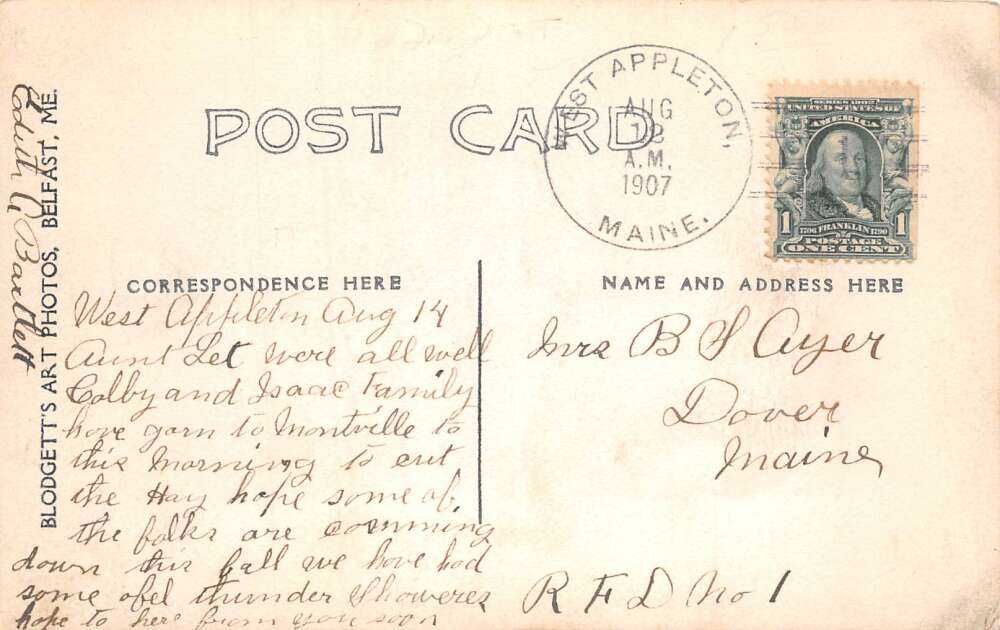 POST CARD
WEST APPLETON,
AUG
A.M.
1907
MAINE.
SERIES 1902
UNITED STATES OF
AMERICA
1 1
1706 FRANKLIN 1790
POSTAGE
ONE CENT
BLODGETT'S ART PHOTOS, BELFAST, ME.
Edith A Bartlett
CORRESPONDENCE HERE
West Appleton Aug 14
Aunt Let were all well
Colby and Isaac Family
have gorn to Montville to
this morning to cut
the Hay hope some of
the folks are comming
down this fall we have had
some ofel thunder Showeres
hope to here from you soon
NAME AND ADDRESS HERE
Mrs B S Ayer
Dover
Maine
R F D No 1